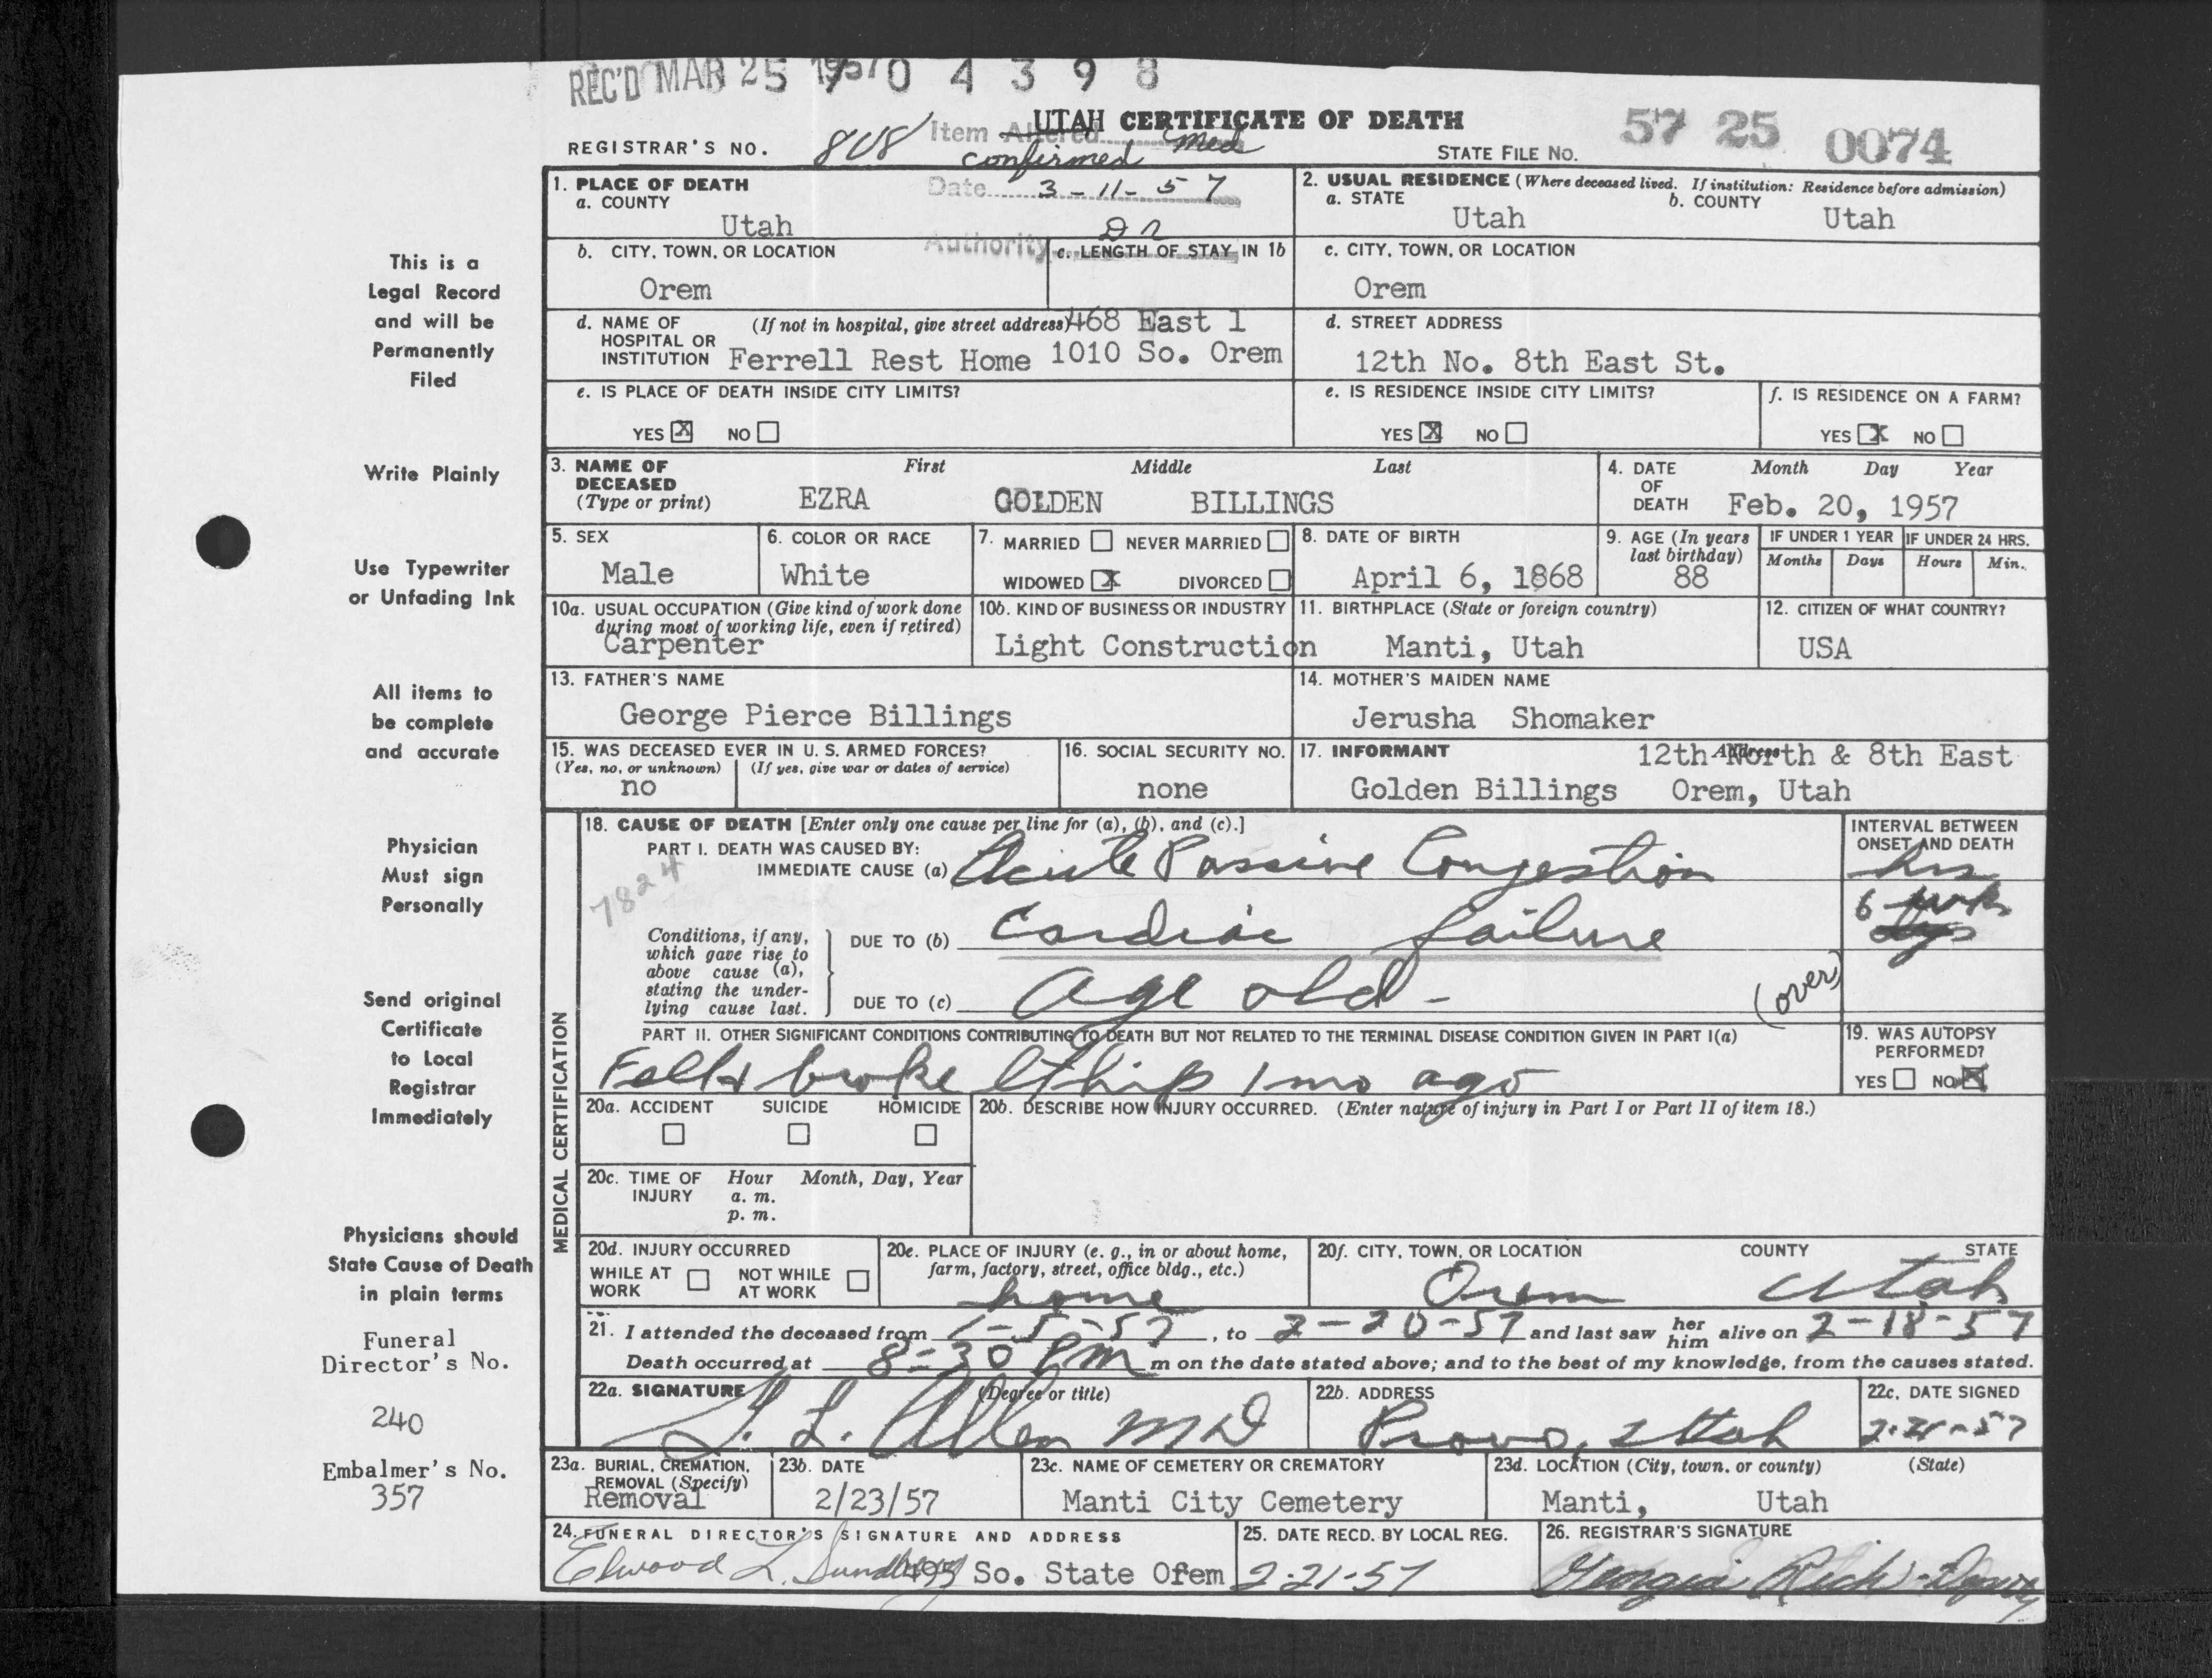 REC'D MAR 25 1957 0 4 3 9 8
UTAH CERTIFICATE OF DEATH
REGISTRAR'S NO. 808
Item Altered confirmed Med
STATE FILE NO. 57 25 0074
Date 3-11-57
Authority Dr
1. PLACE OF DEATH
a. COUNTY
Utah
2. USUAL RESIDENCE (Where deceased lived. If institution: Residence before admission)
a. STATE
Utah
b. COUNTY
Utah
b. CITY, TOWN, OR LOCATION
Orem
c. LENGTH OF STAY IN 1b
c. CITY, TOWN, OR LOCATION
Orem
d. NAME OF HOSPITAL OR INSTITUTION (If not in hospital, give street address)
468 East 1
Ferrell Rest Home 1010 So. Orem
d. STREET ADDRESS
12th No. 8th East St.
e. IS PLACE OF DEATH INSIDE CITY LIMITS?
YES X NO
e. IS RESIDENCE INSIDE CITY LIMITS?
YES X NO
f. IS RESIDENCE ON A FARM?
YES X NO
3. NAME OF DECEASED (Type or print)
First Middle Last
EZRA GOLDEN BILLINGS
4. DATE OF DEATH
Month Day Year
Feb. 20, 1957
5. SEX
Male
6. COLOR OR RACE
White
7. MARRIED NEVER MARRIED
WIDOWED X DIVORCED
8. DATE OF BIRTH
April 6, 1868
9. AGE (In years last birthday)
88
IF UNDER 1 YEAR
Months Days
IF UNDER 24 HRS.
Hours Min.
10a. USUAL OCCUPATION (Give kind of work done during most of working life, even if retired)
Carpenter
10b. KIND OF BUSINESS OR INDUSTRY
Light Construction
11. BIRTHPLACE (State or foreign country)
Manti, Utah
12. CITIZEN OF WHAT COUNTRY?
USA
13. FATHER'S NAME
George Pierce Billings
14. MOTHER'S MAIDEN NAME
Jerusha Shomaker
15. WAS DECEASED EVER IN U. S. ARMED FORCES?
(Yes, no, or unknown) (If yes, give war or dates of service)
no
16. SOCIAL SECURITY NO.
none
17. INFORMANT Address
12th North & 8th East
Golden Billings Orem, Utah
MEDICAL CERTIFICATION
18. CAUSE OF DEATH [Enter only one cause per line for (a), (b), and (c).]
PART I. DEATH WAS CAUSED BY:
IMMEDIATE CAUSE (a) Acute Passive Congestion
7824
Conditions, if any, which gave rise to above cause (a), stating the underlying cause last.
DUE TO (b) Cardiac failure
DUE TO (c) age old - (over)
INTERVAL BETWEEN ONSET AND DEATH
hrs
6 wks
dys
PART II. OTHER SIGNIFICANT CONDITIONS CONTRIBUTING TO DEATH BUT NOT RELATED TO THE TERMINAL DISEASE CONDITION GIVEN IN PART I(a)
Fell & broke lt hip 1 mo ago
19. WAS AUTOPSY PERFORMED?
YES NO X
20a. ACCIDENT SUICIDE HOMICIDE
20b. DESCRIBE HOW INJURY OCCURRED. (Enter nature of injury in Part I or Part II of item 18.)
20c. TIME OF INJURY
Hour Month, Day, Year
a. m.
p. m.
20d. INJURY OCCURRED
WHILE AT WORK NOT WHILE AT WORK
20e. PLACE OF INJURY (e. g., in or about home, farm, factory, street, office bldg., etc.)
home
20f. CITY, TOWN, OR LOCATION COUNTY STATE
Orem Utah
21. I attended the deceased from 1-5-57, to 2-20-57 and last saw her him alive on 2-18-57
Death occurred at 8-30 Pm m on the date stated above; and to the best of my knowledge, from the causes stated.
22a. SIGNATURE (Degree or title)
L. Allen MD
22b. ADDRESS
Provo, Utah
22c. DATE SIGNED
2-21-57
23a. BURIAL, CREMATION, REMOVAL (Specify)
Removal
23b. DATE
2/23/57
23c. NAME OF CEMETERY OR CREMATORY
Manti City Cemetery
23d. LOCATION (City, town, or county) (State)
Manti, Utah
24. FUNERAL DIRECTOR'S SIGNATURE AND ADDRESS
Elwood L. Sundberg 495 So. State Orem
25. DATE RECD. BY LOCAL REG.
2-21-57
26. REGISTRAR'S SIGNATURE
Georgia Rich - Deputy
This is a
Legal Record
and will be
Permanently
Filed
Write Plainly
Use Typewriter
or Unfading Ink
All items to
be complete
and accurate
Physician
Must sign
Personally
Send original
Certificate
to Local
Registrar
Immediately
Physicians should
State Cause of Death
in plain terms
Funeral
Director's No.
240
Embalmer's No.
357